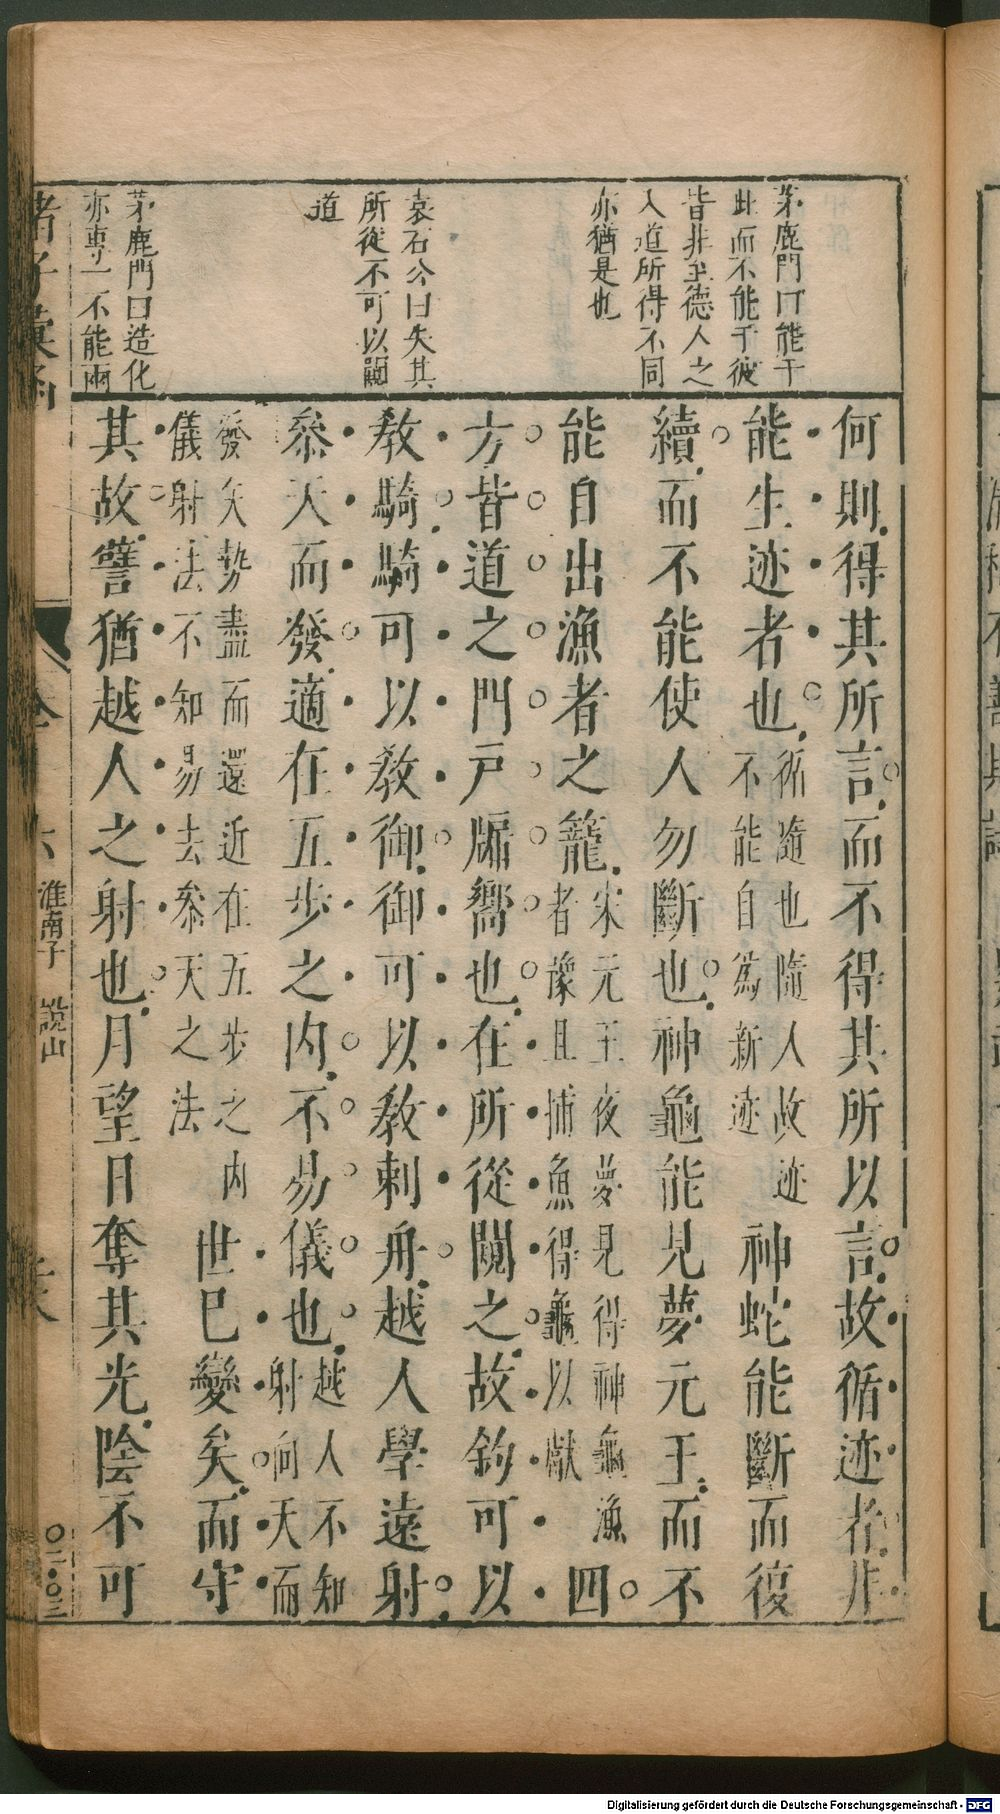 茅鹿門曰能于
此而不能于彼
皆非至德人之
入道所得不同
亦猶是也
袁石公曰失其
所從不可以闚
道
茅鹿門曰造化
亦專一不能兩
何則得其所言而不得其所以言故循迹者非
能生迹者也循隨也隨人故迹不能自爲新迹神蛇能斷而復
續而不能使人勿斷也神龜能見夢元王而不
能自出漁者之籠宋元王夜夢見得神龜漁者豫且捕魚得龜以獻四
方皆道之門戸牖嚮也在所從闚之故鈞可以
教騎騎可以教御御可以教刺舟越人學遠射
叅天而發適在五步之内不易儀也越人不知射向天而
發矢勢盡而還近在五步之内儀射法不知易去叅天之法世巳變矣而守
其故譬猶越人之射也月望日奪其光陰不可
諸子彙函
卷
六
淮南子 說山
〇二·〇三
Digitalisierung gefördert durch die Deutsche Forschungsgemeinschaft - DFG